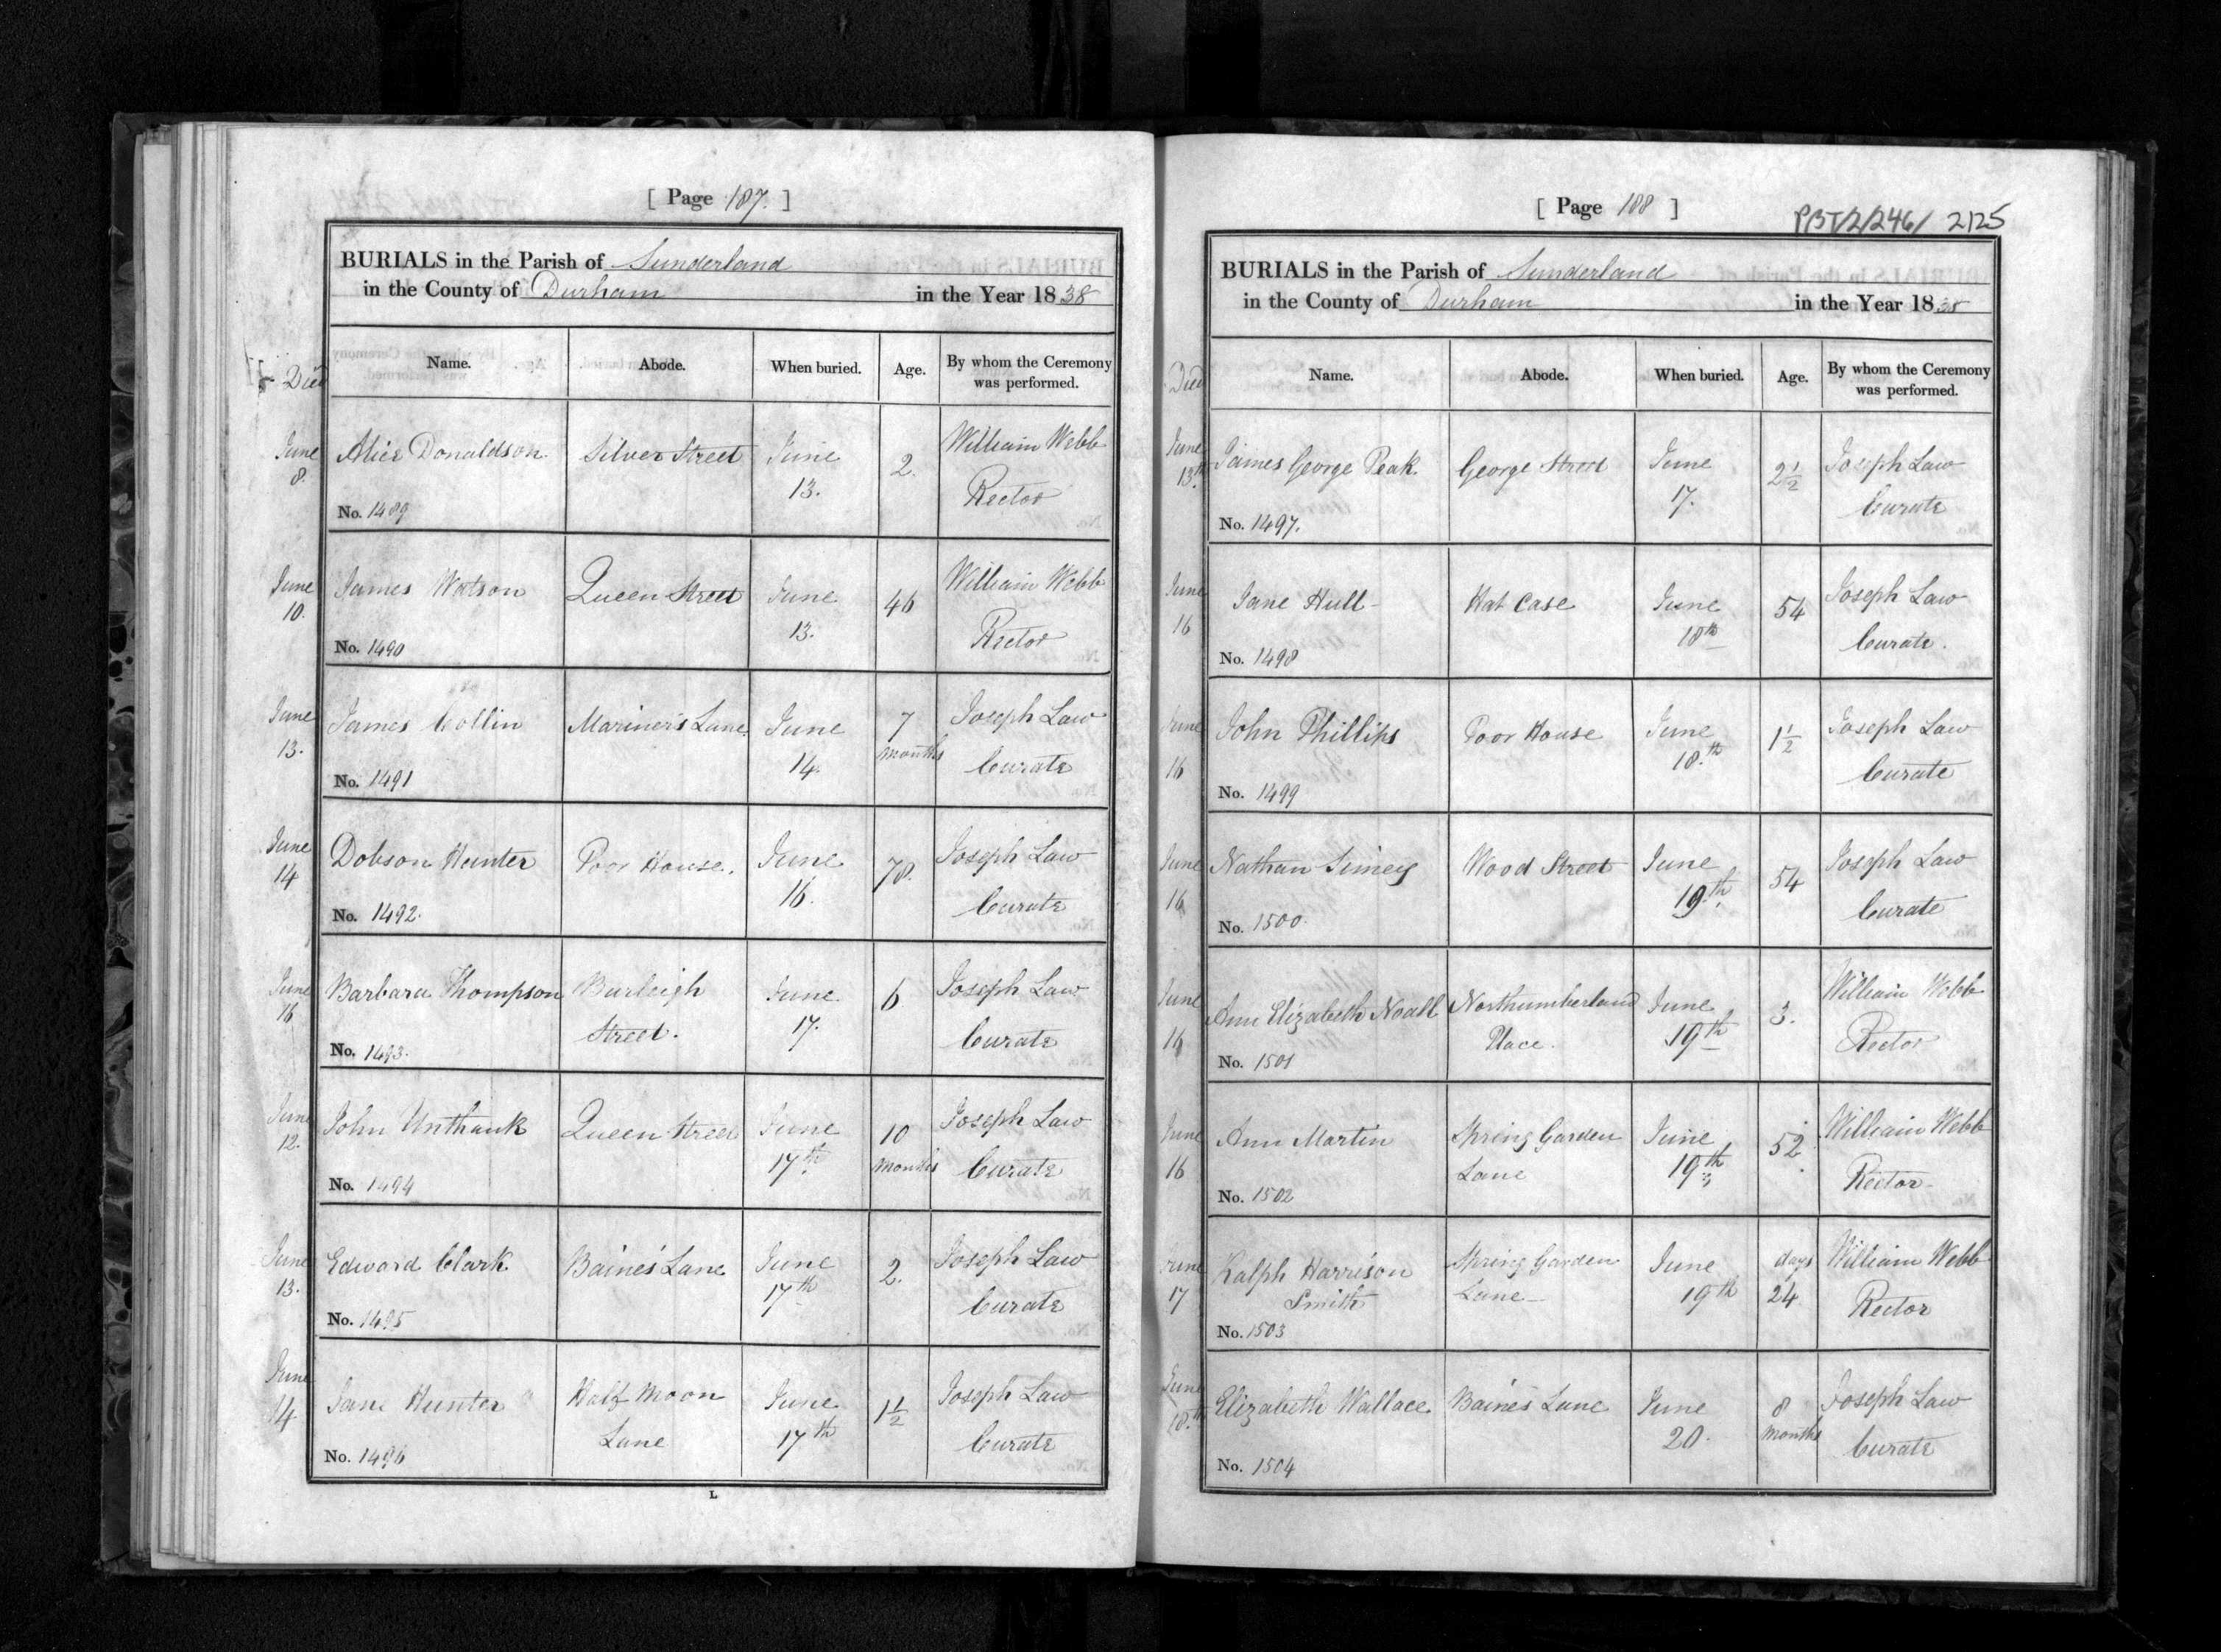 [ Page 187. ]
BURIALS in the Parish of Sunderland
in the County of Durham in the Year 1838
Died
Name. Abode. When buried. Age. By whom the Ceremony was performed.
June 8. Alice Donaldson Silver Street June 13. 2. William Webb Rector
No. 1489
June 10. James Watson Queen Street June 13. 46 William Webb Rector
No. 1490
June 13. James Collin Mariner's Lane. June 14. 7 months Joseph Law Curate
No. 1491
June 14 Dobson Hunter Poor House. June 16. 78. Joseph Law Curate
No. 1492.
June 16 Barbara Thompson Burleigh Street. June 17. 6 Joseph Law Curate
No. 1493.
June 12. John Unthank Queen Street June 17th 10 months Joseph Law Curate
No. 1494
June 13. Edward Clark Baines Lane June 17th 2. Joseph Law Curate
No. 1495
June 14. Jane Hunter Half Moon Lane June 17th 1½ Joseph Law Curate
No. 1496
L
[ Page 188 ]
PBT/2/246/ 2125
BURIALS in the Parish of Sunderland
in the County of Durham in the Year 1838
Died
Name. Abode. When buried. Age. By whom the Ceremony was performed.
June 13th James George Peak George Street June 17. 2½ Joseph Law Curate
No. 1497.
June 16 Jane Hull Hat Case June 18th 54 Joseph Law Curate.
No. 1498
June 16 John Phillips Poor House June 18.th 1½ Joseph Law Curate
No. 1499
June 16 Nathan Simey Wood Street June 19th. 54 Joseph Law Curate
No. 1500.
June 16 Ann Elizabeth Noall Northumberland Place. June 19th 3. William Webb Rector
No. 1501
June 16 Ann Martin Spring Garden Lane June 19th 52 William Webb Rector
No. 1502
June 17 Ralph Harrison Smith Spring Garden Lane June 19th days 24 William Webb Rector
No. 1503
June 18.th Elizabeth Wallace. Baines Lane June 20. 8 Months Joseph Law Curate
No. 1504